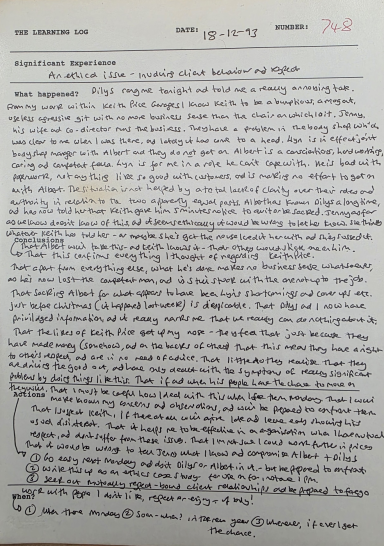 THE LEARNING LOG DATE: 18-12-93 NUMBER: 748
Significant Experience
An ethical issue - involving client behaviour and respect
What happened? Dilys rang me tonight and told me a really annoying tale.
From my work within Keith Price Garages I know Keith to be a bumptious, arrogant,
useless aggressive git with no more business sense than the chair on which I sit. Jenny,
his wife and co-director runs the business. They have a problem in the body shop which
was clear to me when I was there, and lately it has come to a head. Lyn is in effect joint
bodyshop manager with Albert and they do not get on. Albert is a conscientious, hard working,
caring and competent fella. Lyn is for me in a role he can't cope with. He is bad with
paperwork, not anything like so good with customers, and is making no effort to get on
with Albert. The situation is not helped by a total lack of clarity over their roles and
authority in relation to the two apparently equal posts. Albert has known Dilys a long time,
and has now told her that Keith gave him 5 minutes notice to quit or be sacked. Jenny as far
as we know doesn't know of this and it seems ethically it would be wrong to let her know. She thinks
whatever Keith has told her - or maybe she's got the nous to collude with and she's fixed it.
Conclusions
That Albert won't take this - and Keith knows it - that others would hire me on him
That this confirms everything I thought of regarding Keith Price.
That apart from everything else, what he's done makes no business sense whatsoever,
as he's now lost the competent man, and is stuck with the one not up to the job.
That sacking Albert for what appears to have been Lyn's shortcomings and cover ups etc.
just before Christmas (it happened last week) is despicable. That Dilys and I now have
privileged information and it really narks me that we really can do nothing about it.
That the likes of Keith Price get up my nose - the effect that just because they
have made money (somehow, and on the backs of others) that this means they have a right
to others' respect, and are in no need of advice. That little do they realise that they
are driving the good out, and have only dealt with the symptoms of really significant
problems by doing things like this. That if and when his people have the chance to move on
they will. That I must be careful how I deal with this when I see them Monday. That I will
Actions make known my concerns and observations, and won't be prepared to confront them
That I respect Keith. If there ever was a love like and lose
as such did start. That it helps me to be effective in an organisation when I have mutual
respect, and don't suffer from these issues. That I'm not sure I could work further in Prices
That it would be wrong to tell Jenny what I know and compromise Albert + Dilys
① Go easy next Monday and don't Dilys or Albert in it - but be prepared to confront
② Write this up as an ethics case study for use on for instance I.P.M.
③ Seek out mutually respect-bound client relationships and be prepared to forego
work with people I don't like, respect or enjoy - if only!
When?
① When there Monday ② Soon - when? in the new year ③ Whenever, if ever I get
the chance.